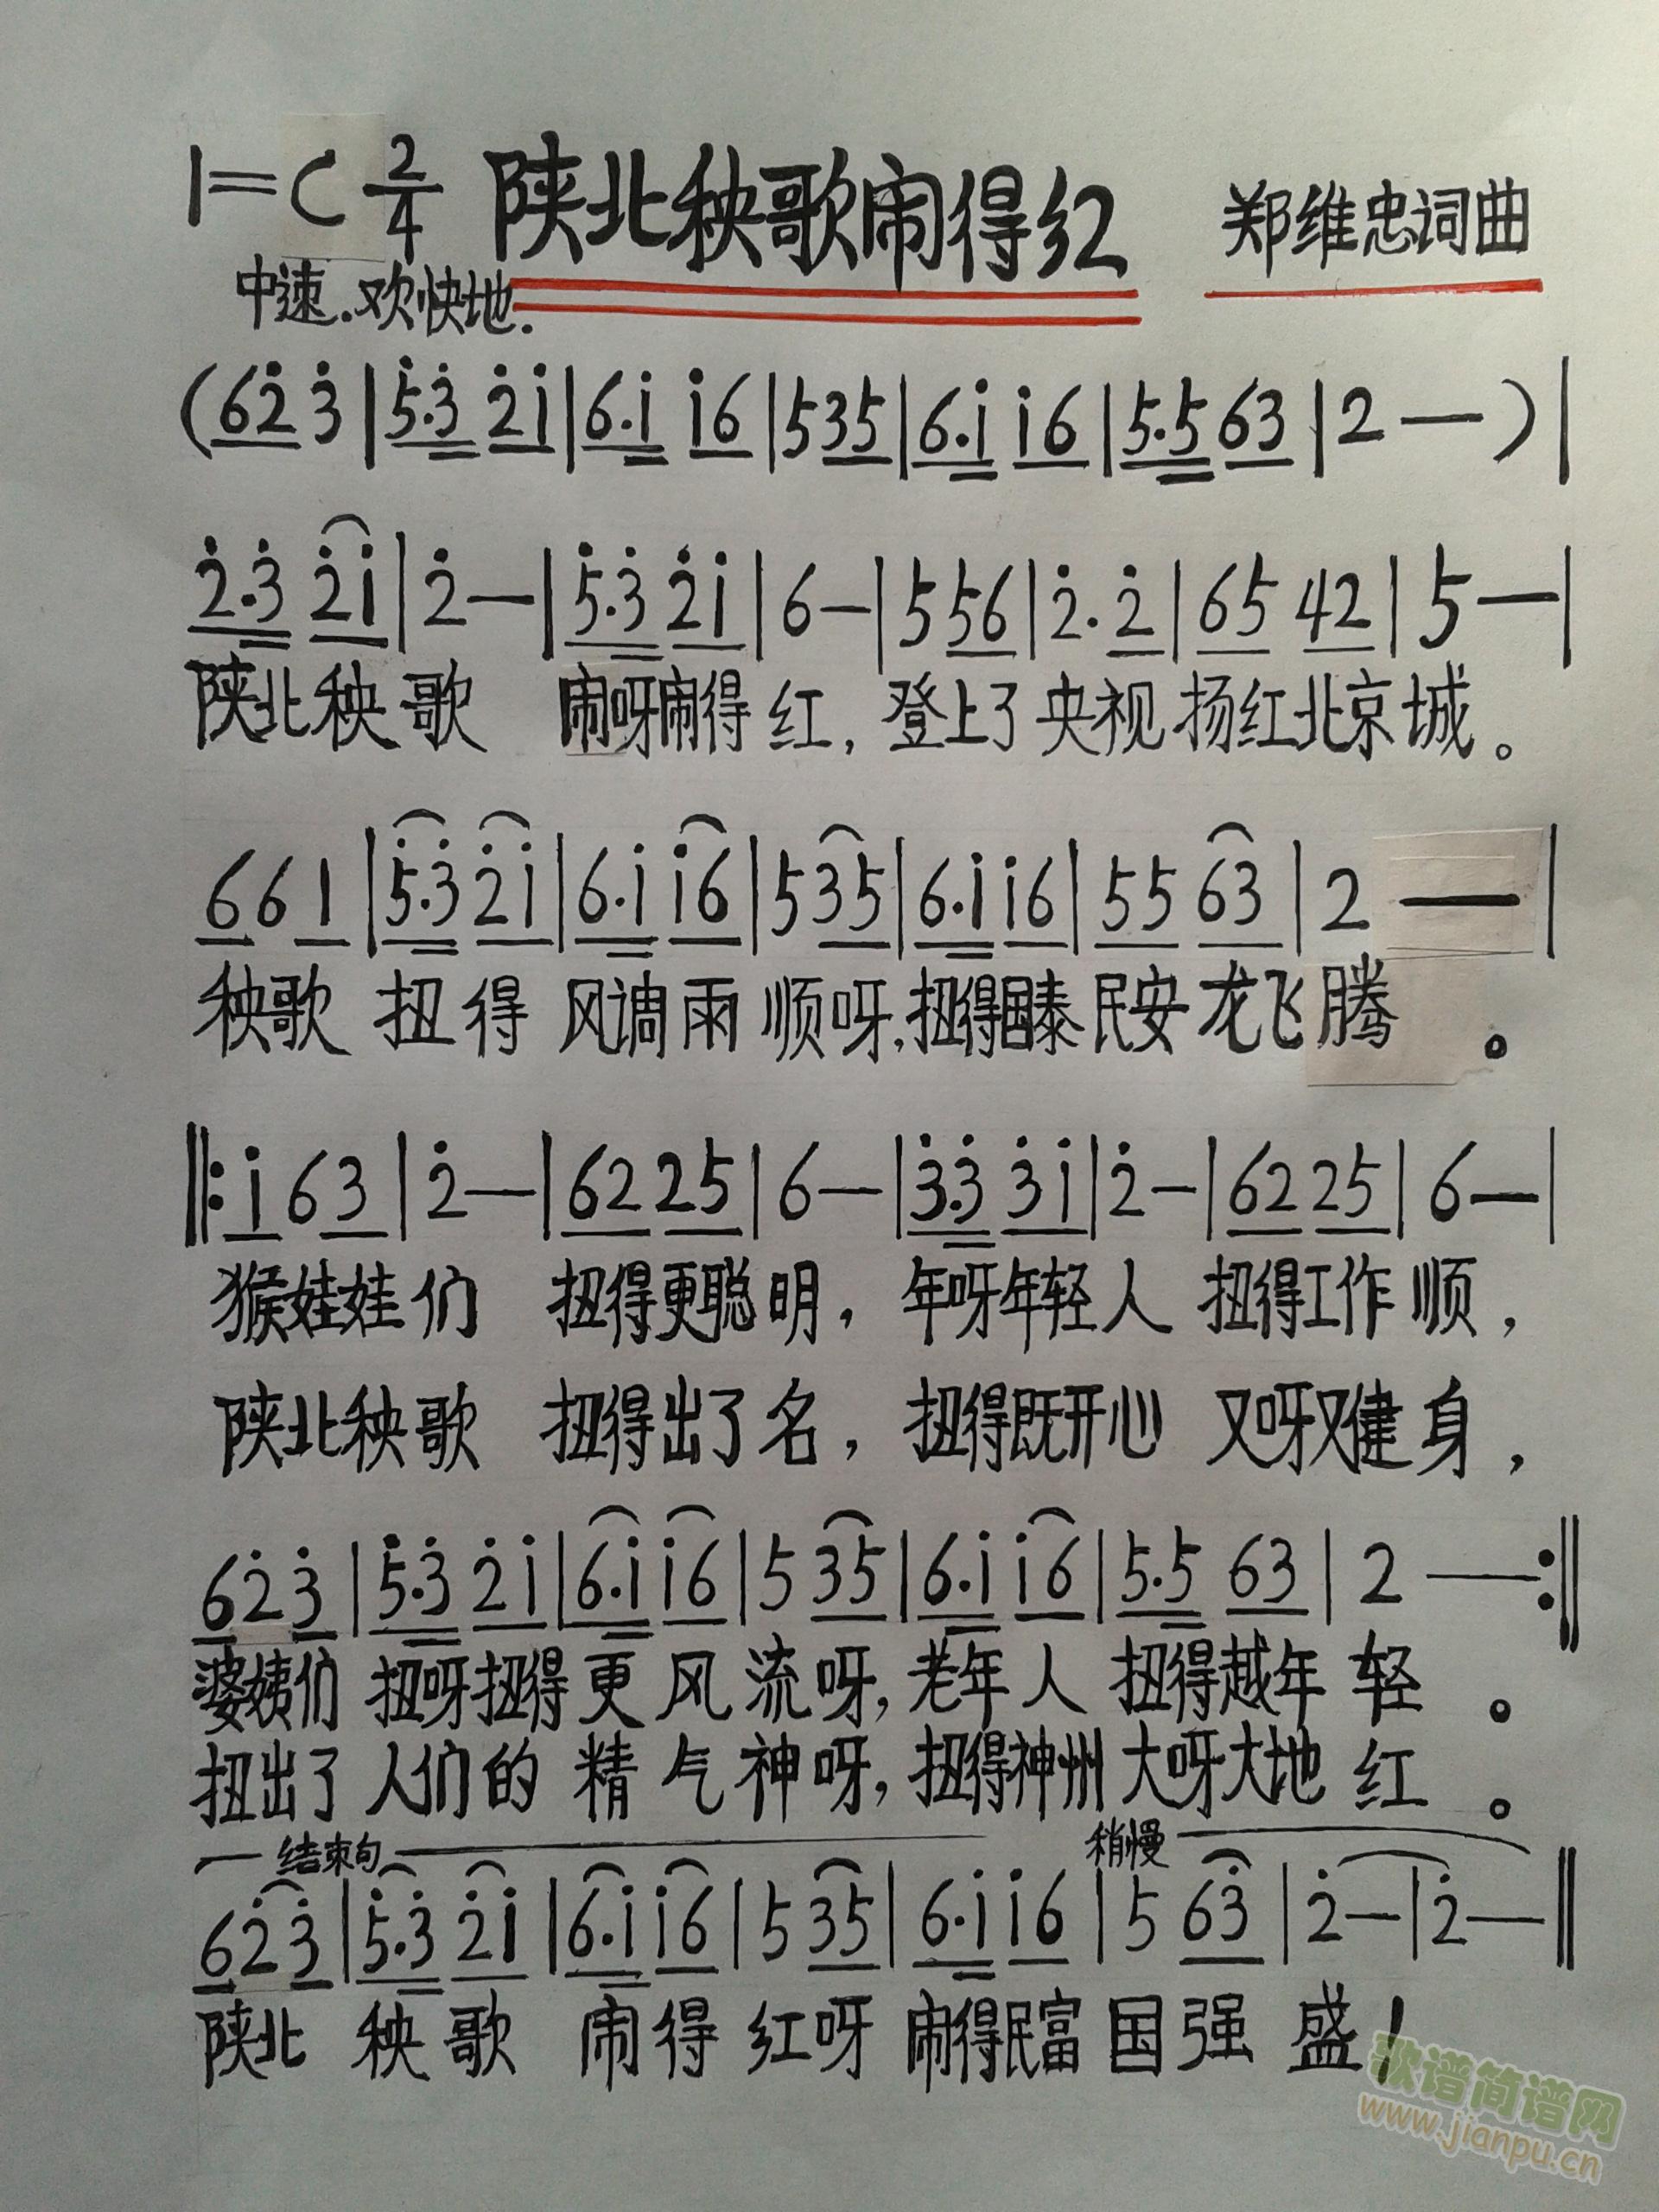 1=C 2/4 陕北秧歌闹得红 郑维忠词曲
中速.欢快地.
(6 2̇ 3̇ | 5̇.3̇ 2̇ i̇ | 6.i̇ i̇6 | 5 35 | 6.i̇ i̇6 | 5.5 63 | 2 — ) |
2̇.3̇ 2̇i̇ | 2̇ — | 5̇.3̇ 2̇i̇ | 6 — | 5 56 | 2̇. 2̇ | 65 42 | 5 — |
陕北秧歌 闹呀闹得红,登上了央视扬红北京城。
6 6 1 | 5̇.3̇ 2̇i̇ | 6.i̇ i̇6 | 5 35 | 6.i̇ i̇6 | 55 63 | 2 — |
秧歌 扭得 风调雨顺呀,扭得国泰民安龙飞腾。
‖: i̇ 6 3 | 2̇ — | 62 25 | 6 — | 3̇.3̇ 3̇i̇ | 2̇ — | 62 25 | 6 — |
猴娃娃们 扭得更聪明,年呀年轻人 扭得工作顺,
陕北秧歌 扭得出了名,扭得既开心 又呀又健身,
6 2̇ 3̇ | 5̇.3̇ 2̇i̇ | 6.i̇ i̇6 | 5 35 | 6.i̇ i̇6 | 5.5 63 | 2 — :‖
婆姨们 扭呀扭得更风流呀,老年人 扭得越年轻。
扭出了人们的精气神呀,扭得神州大呀大地红。
结束句 稍慢
6 2̇ 3̇ | 5̇.3̇ 2̇i̇ | 6.i̇ i̇6 | 5 35 | 6.i̇ i̇6 | 5 63̇ | 2̇ — | 2̇ — ‖
陕北 秧歌 闹得红呀 闹得民富国强盛!
歌谱简谱网
www.jianpu.cn